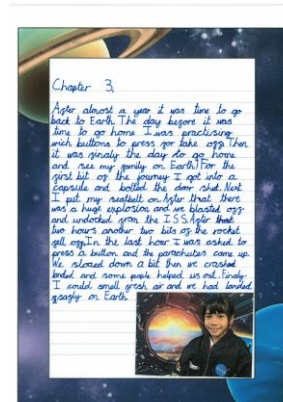 Chapter 3,
After almost a year it was time to go
back to Earth. The day before it was
time to go home I was practising
wich buttons to press for take off. Then
it was finaly the day to go home
and see my family on Earth! For the
first bit of the journey I got into a
capsule and bolted the door shut. Next
I put my seatbelt on. After that there
was a huge explosion and we blasted off
and undocked from the I.S.S. After that
two hours another two bits of the rocket
fell off. In the last hour I was asked to
press a button and the parachutes came up.
We slowed down a bit then we crashed
landed and some people helped us out. Finaly
I could smell fresh air and we had landed
safly on Earth.